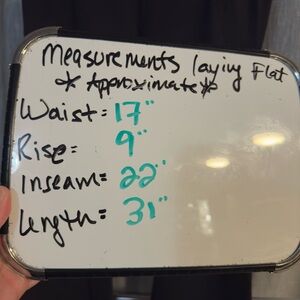 Measurements laying Flat
* Approximate *
Waist = 17"
Rise = 9"
Inseam = 22"
Length = 31"